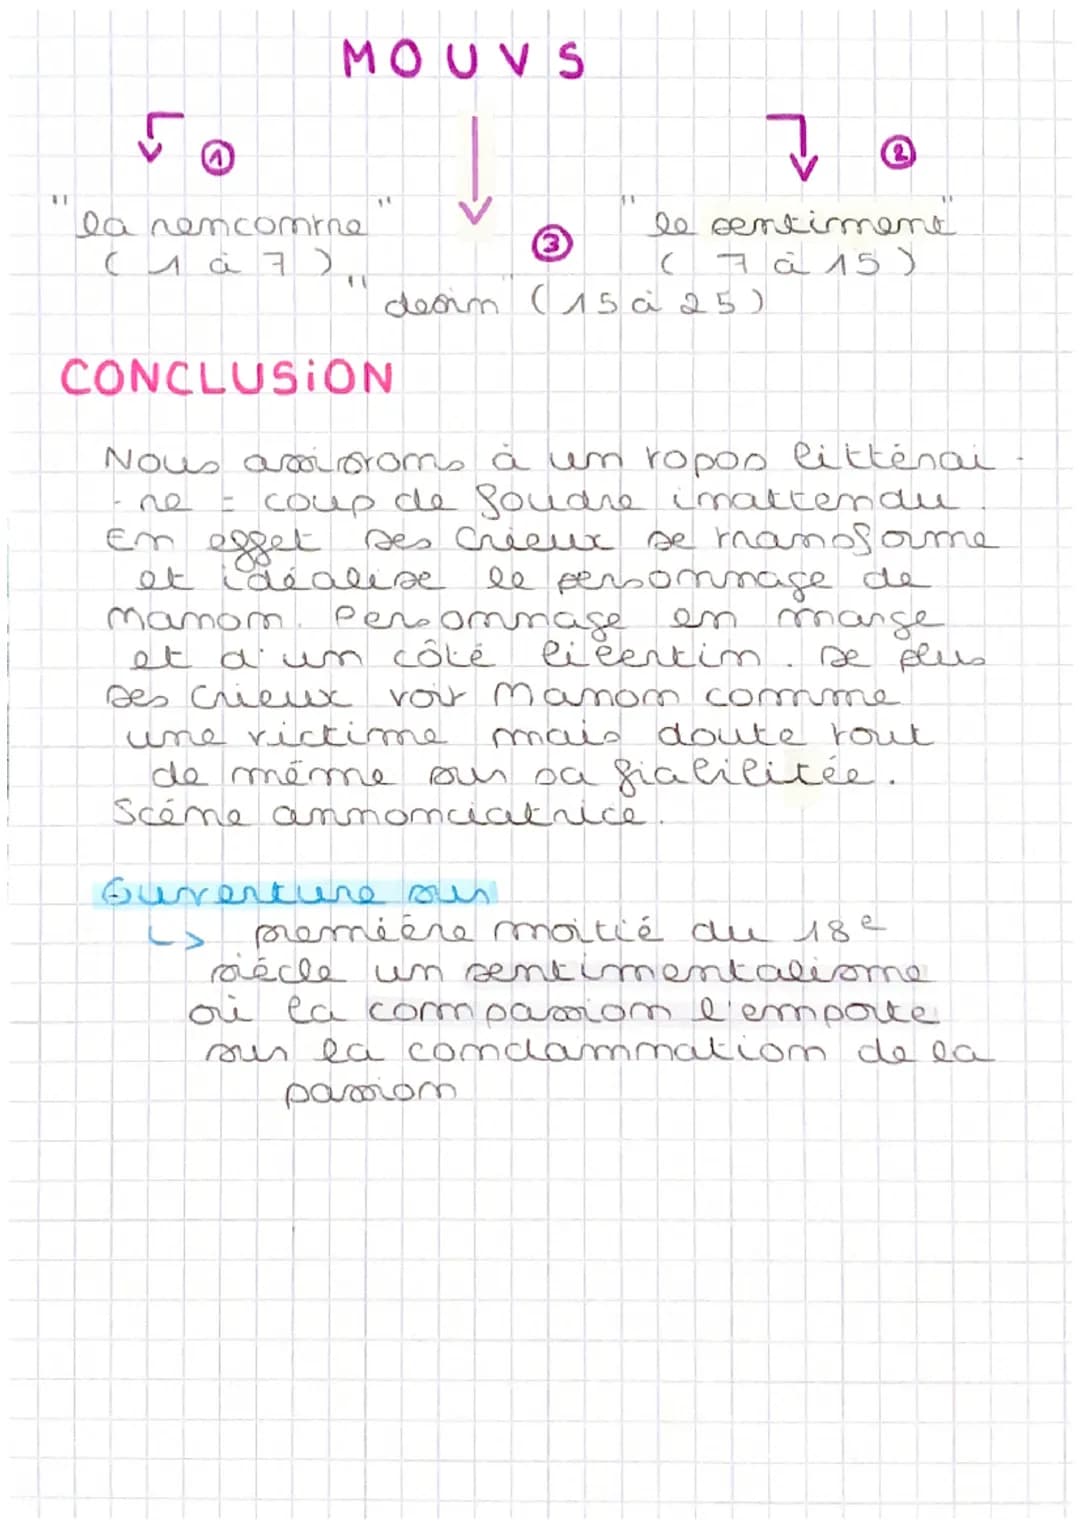 MOUVS
① ②
"la rencontre" "le sentiment"
(1 à 7) ③ (7 à 15)
"desin" (15 à 25)
CONCLUSiON
Nous assistons à un topos littérai-
-re = coup de foudre inattendu.
En effet Des Crieux se transforme
et idéalise le personnage de
Manon. Personnage en marge
et d'un côté libertin. De plus
Des Crieux voit Manon comme
une victime mais doute tout
de même sur sa fiabilitée.
Scéne annonciatrice.
Ouverture sur
↳ première moitié du 18e
siécle un sentimentalisme
où la compassion l'emporte
sur la condammation de la
passion